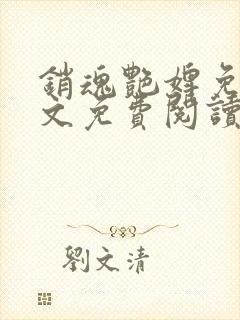 銷魂艷婢免
文免費閱讀
劉文清